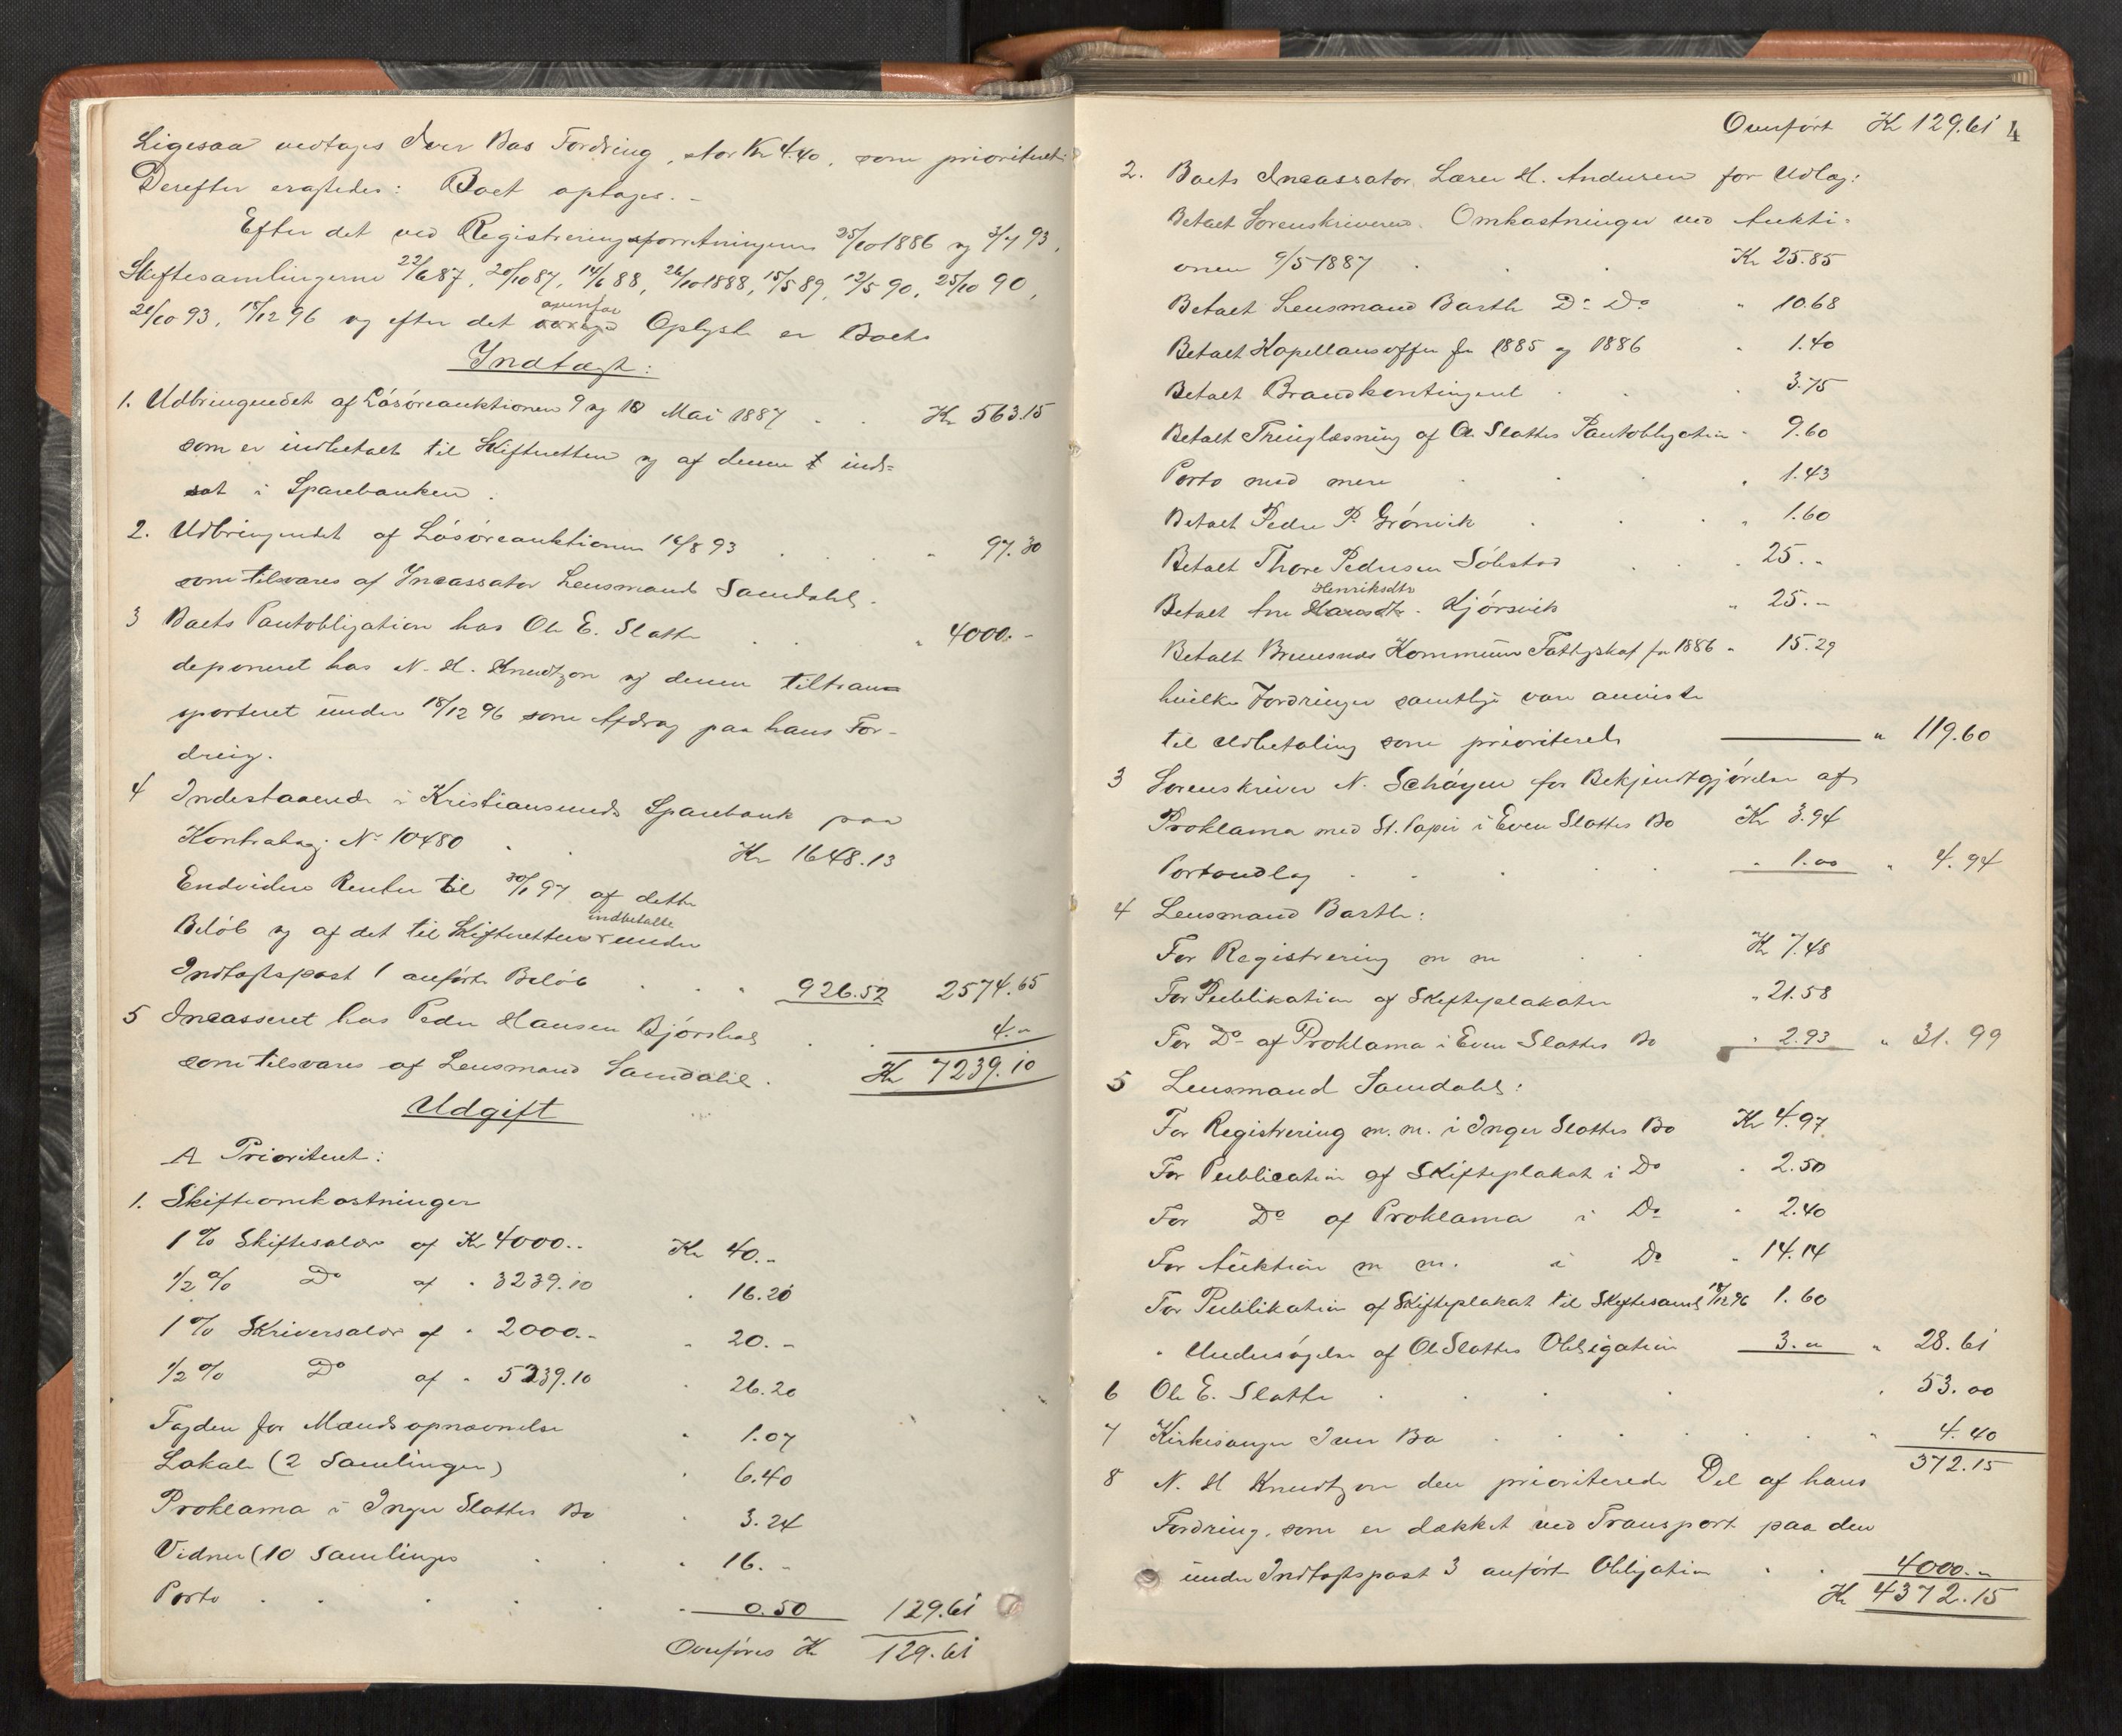 Ligesaa vedtoges Iver Bos Fordring, stor Kr 4.40, som prioriteret.
Derefter eragtedes: Boet optages.-
Efter det ved Registreringsforretningerne 25/10 1886 og 3/7 93,
Skiftesamlingerne 22/6 87, 20/10 87, 14/6 88, 26/10 1888, 15/5 89, 12/5 90, 25/10 90,
21/10 93, 18/12 96 og efter det ovenfor Oplyste er Boets
Indtægt:
1. Udbringendet af Løsøreauktionen 9 og 10 Mai 1887 . . Kr 563.15
som er indbetalt til Skifteretten og af denne ind=
sat i Sparebanken.
2. Udbringendet af Løsøreauktionen 16/8 93 . . . . " 97.30
som tilsvares af Incassator Lensmand Samdahl.
3 Boets Pantobligation hos Ole E. Slatte . . " 4000.-
deponeret hos N. H. Knudtzon og denne tiltran
sporteret under 18/12 96 som Afdrag paa hans For-
dring.
4 Indestaaende i Kristiansunds Sparebank paa
Kontrabog No 10480 . . Kr 1648.13
Endvidere Renter til 30/1 97 af dette
Beløb og af det til Skifteretten indbetalte under
Indtægtspost 1 anførte Beløb . . . " 926.52 2574.65
5 Incasseret hos Peder Hansen Bjørshol . . 4.-
som tilsvares af Lensmand Samdahl. Kr 7239.10
Udgift
A Prioriteret:
1. Skifteomkostninger
1 % Skiftesalær af Kr 4000.. Kr 40.-
1/2 % Do af " 3239.10 " 16.20
1 % Skriversalær af " 2000.- " 20.-
1/2 % Do af " 5239.10 " 26.20
Fogden for Mændsopnævnelse " 1.07
Lokale (2 Samlinger) " 6.40
Proklama i Inger Slattes Bo " 3.24
Vidner (10 Samlinger . . " 16.-
Porto . . . . . " 0.50 129.61
Overføres Kr 129.61
Overført Kr 129.61 4
2. Boets Incassator Lærer H. Andersen for Udlæg:
Betalt Sorenskriveren. Omkostninger ved Aukti-
onen 9/5 1887 . . Kr 25.85
Betalt Lensmand Barth Do Do " 10.68
Betalt Kapellansoffer for 1885 og 1886 " 1.40
Betalt Brandkontingent . . " 3.75
Betalt Thinglæsning af Ole Slattes Pantobligation " 9.60
Porto med mere . . . " 1.43
Betalt Peder P. Grønvik . . . " 1.60
Betalt Thore Pedersen Sølestad . . " 25.-
Betalt Ane Henriksdtr Kjørsvik " 25.-
Betalt Bremsnes Kommune Fattigskat for 1886 " 15.29
hvilke Fordringer samtlige vare anviste
til Udbetaling som prioriterede " 119.60
3 Sorenskriver N. Schøyen for Bekjendtgjørelse af
Proklama med St. Papir i Even Slattes Bo Kr 3.94
Portoudlæg . . . . . " 1.00 " 4.94
4 Lensmand Barth:
For Registrering m m . . Kr 7.48
For Publikation af Skifteplakater " 21.58
For Do af Proklama i Even Slattes Bo " 2.93 " 31.99
5 Lensmand Samdahl:
For Registrering m. m. i Inger Slattes Bo Kr 4.97
For Publication af Skifteplakat i Do " 2.50
For Do af Proklama i Do " 2.40
For Auktion m m. i Do " 14.14
For Publikation af Skifteplakat til Skiftesaml 18/12 96 1.60
" Undersøgelse af Ole Slattes Obligation 3.- " 28.61
6 Ole E. Slatte . . . . " 53.00
7 Kirkesanger Iver Bo . . . . . " 4.40
372.15
8 N. H Knudtzon den prioriterede Del af hans
Fordring, som er dækket ved Transport paa den
under Indtægtspost 3 anførte Obligation . . 4000.-
Kr 4372.15